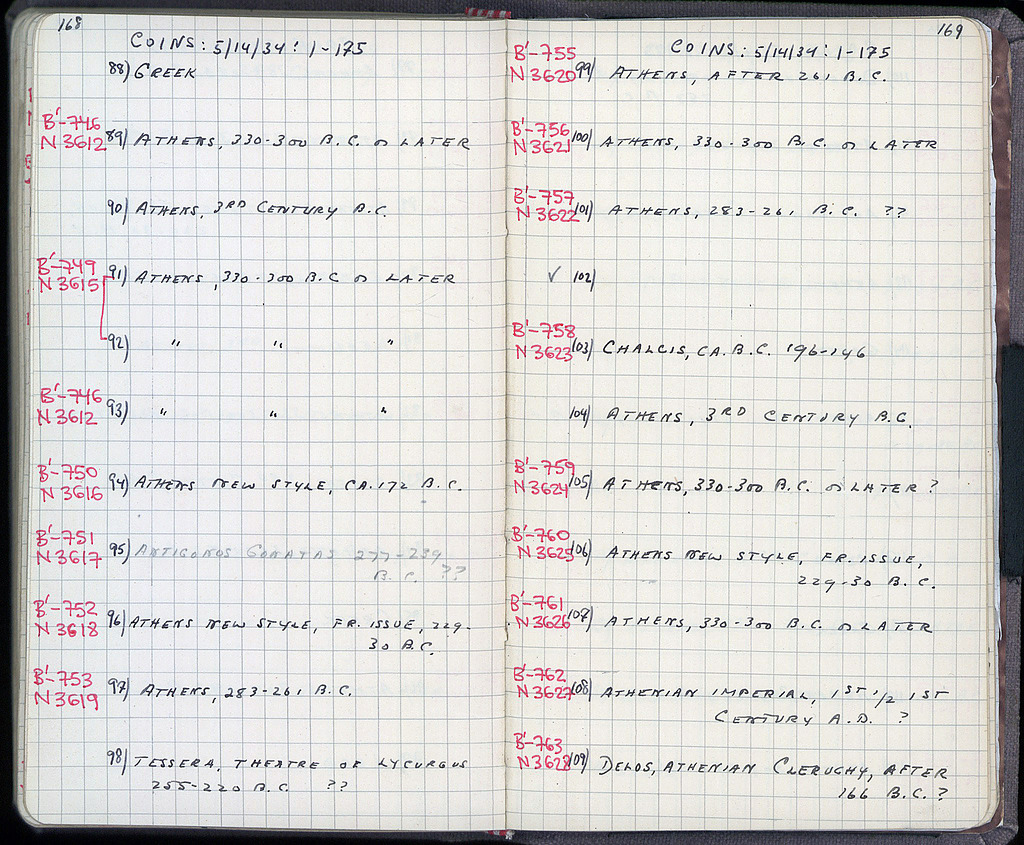 168
COINS: 5/14/34: 1-175
88) GREEK
B'-746
N 3612 89) ATHENS, 330-300 B.C. or LATER
90) ATHENS, 3RD CENTURY B.C.
B'-749
N 3615 91) ATHENS, 330-300 B.C or LATER
92) " " "
B'-746
N 3612 93) " " "
B'-750
N 3616 94) ATHENS NEW STYLE, CA. 172 B.C.
B'-751
N 3617 95) ANTIGONOS GONATAS 277-239
B.C. ??
B'-752
N 3618 96) ATHENS NEW STYLE, FR. ISSUE, 229-
30 B.C.
B'-753
N 3619 97) ATHENS, 283-261 B.C.
98) TESSERA, THEATRE OF LYCURGUS
255-220 B.C ??
169
COINS: 5/14/34: 1-175
B'-755
N 3620 99) ATHENS, AFTER 261 B.C.
B'-756
N 3621 100) ATHENS, 330-300 B.C. or LATER
B'-757
N 3622 101) ATHENS, 283-261 B.C. ??
√ 102)
B'-758
N 3623 103) CHALCIS, CA. B.C. 196-146
104) ATHENS, 3RD CENTURY B.C.
B'-759
N 3624 105) ATHENS, 330-300 B.C. or LATER ?
B'-760
N 3625 106) ATHENS NEW STYLE, FR. ISSUE,
229-30 B.C.
B'-761
N 3626 107) ATHENS, 330-300 B.C. or LATER
B'-762
N 3627 108) ATHENIAN IMPERIAL, 1ST 1/2 1ST
CENTURY A.D. ?
B'-763
N 3628 109) DELOS, ATHENIAN CLERUCHY, AFTER
166 B.C. ?